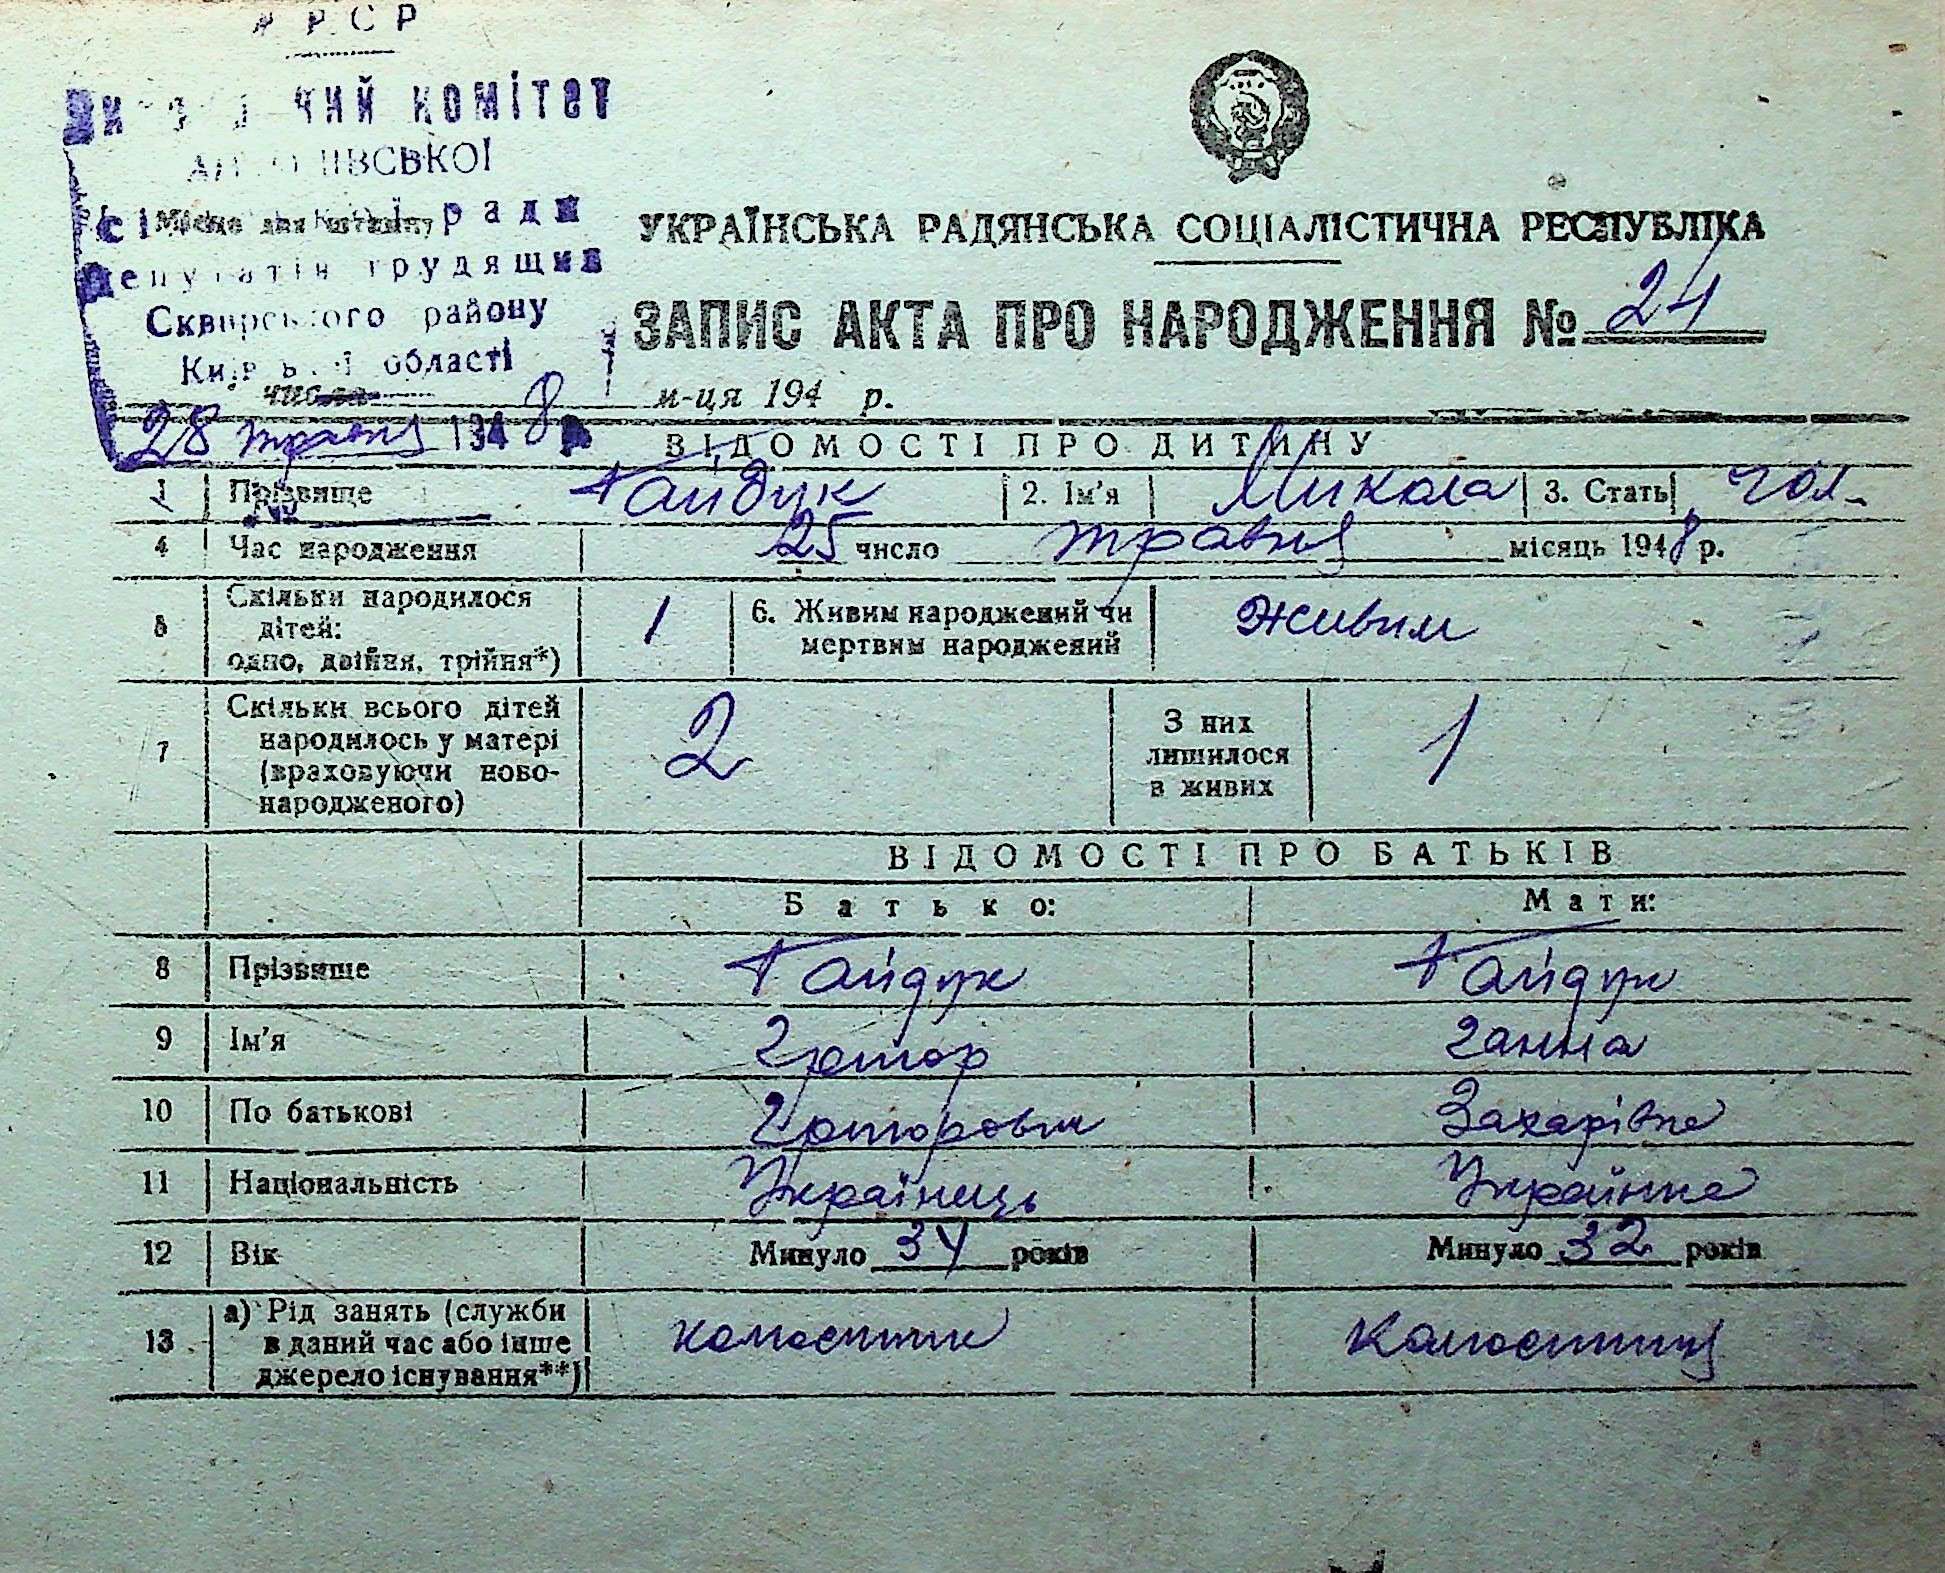 Р С Р
комітет
ради
депутатів трудящих
Сквирського району
Київської області
Місце для штампу
УКРАЇНСЬКА РАДЯНСЬКА СОЦІАЛІСТИЧНА РЕСПУБЛІКА
ЗАПИС АКТА ПРО НАРОДЖЕННЯ № 24
числа м-ця 194 р.
28 травня 1948 р
ВІДОМОСТІ ПРО ДИТИНУ
1 Прізвище Гайдук 2. Ім'я Микола 3. Стать чол.
4 Час народження 25 число травня місяць 1948 р.
5 Скільки народилося
дітей:
одно, двійня, трійня*) 1 6. Живим народжений чи
мертвим народжений Живим
7 Скільки всього дітей
народилось у матері
(враховуючи ново-
народженого) 2 З них
лишилося
в живих 1
ВІДОМОСТІ ПРО БАТЬКІВ
Батько: Мати:
8 Прізвище Гайдук Гайдук
9 Ім'я Ганна
10 По батькові Захарівна
11 Національність Українець Українка
12 Вік Минуло 34 років Минуло 32 років
13 а) Рід занять (служби
в даний час або інше
джерело існування**)